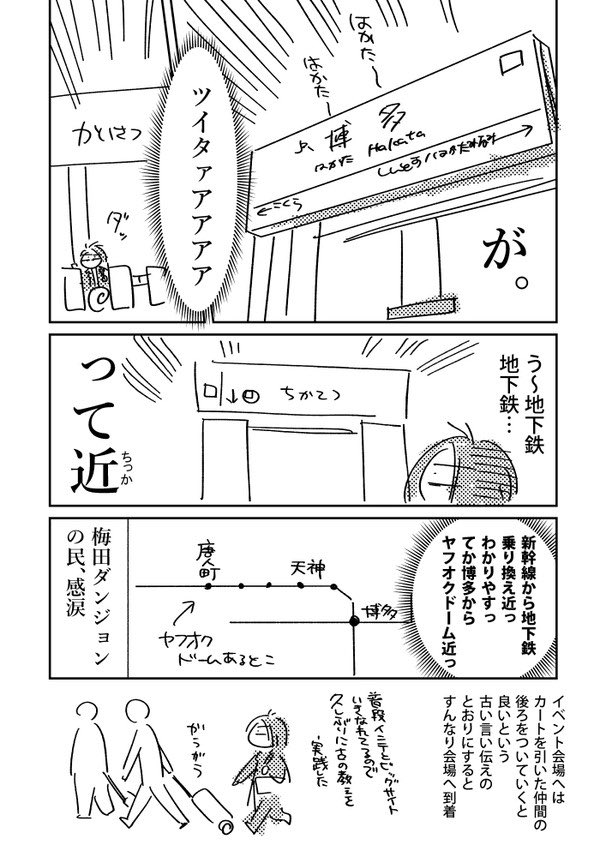 はかた〜
はかた〜
博多
はかた Hakata
←こくら
ツイタァアアアアア
かいさつ
ダッ
が。
う〜地下鉄
地下鉄…
ちかてつ
って近
ちっか
新幹線から地下鉄
乗り換え近っ
わかりやすっ
てか博多から
ヤフオクドーム近っ
博多
天神
唐人町
ヤフオク
ドームあるとこ
梅田ダンジョン
の民、感涙
イベント会場へは
カートを引いた仲間の
後ろをついていくと
良いという
古い言い伝えの
とおりにすると
すんなり会場へ到着
普段インテとビッグサイト
いきなれてるので
久しぶりに古の教えを
実践した
からがら